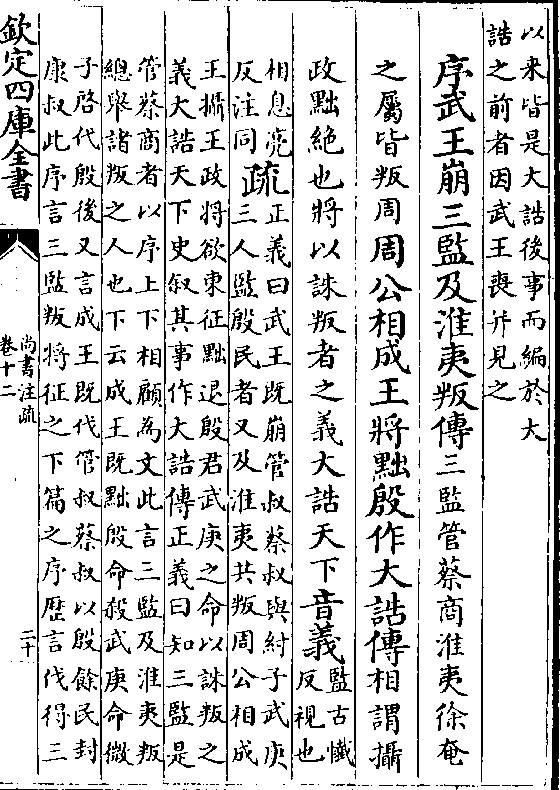 以来皆是大誥後事而編於大
誥之前者因武王喪并見之
序武王崩三監及淮夷叛傳三監管蔡商淮夷徐奄
之屬皆叛周周公相成王將黜殷作大誥傳相謂攝
政黜絶也將以誅叛者之義大誥天下音義監古懴
反視也
相息亮
反注同疏正義曰武王既崩管叔蔡叔與紂子武庚
三人監殷民者又及淮夷共叛周公相成
王攝王政將欲東征黜退殷君武庚之命以誅叛之
義大誥天下史叙其事作大誥傳正義曰知三監是
管蔡商者以序上下相顧為文此言三監及淮夷叛
總舉諸叛之人也下云成王既黜殷命殺武庚命微
子啓代殷後又言成王既伐管叔蔡叔以殷餘民封
康叔此序言三監叛將征之下篇之序歴言伐得三
欽定四庫全書
尚書注疏
卷十二
二十